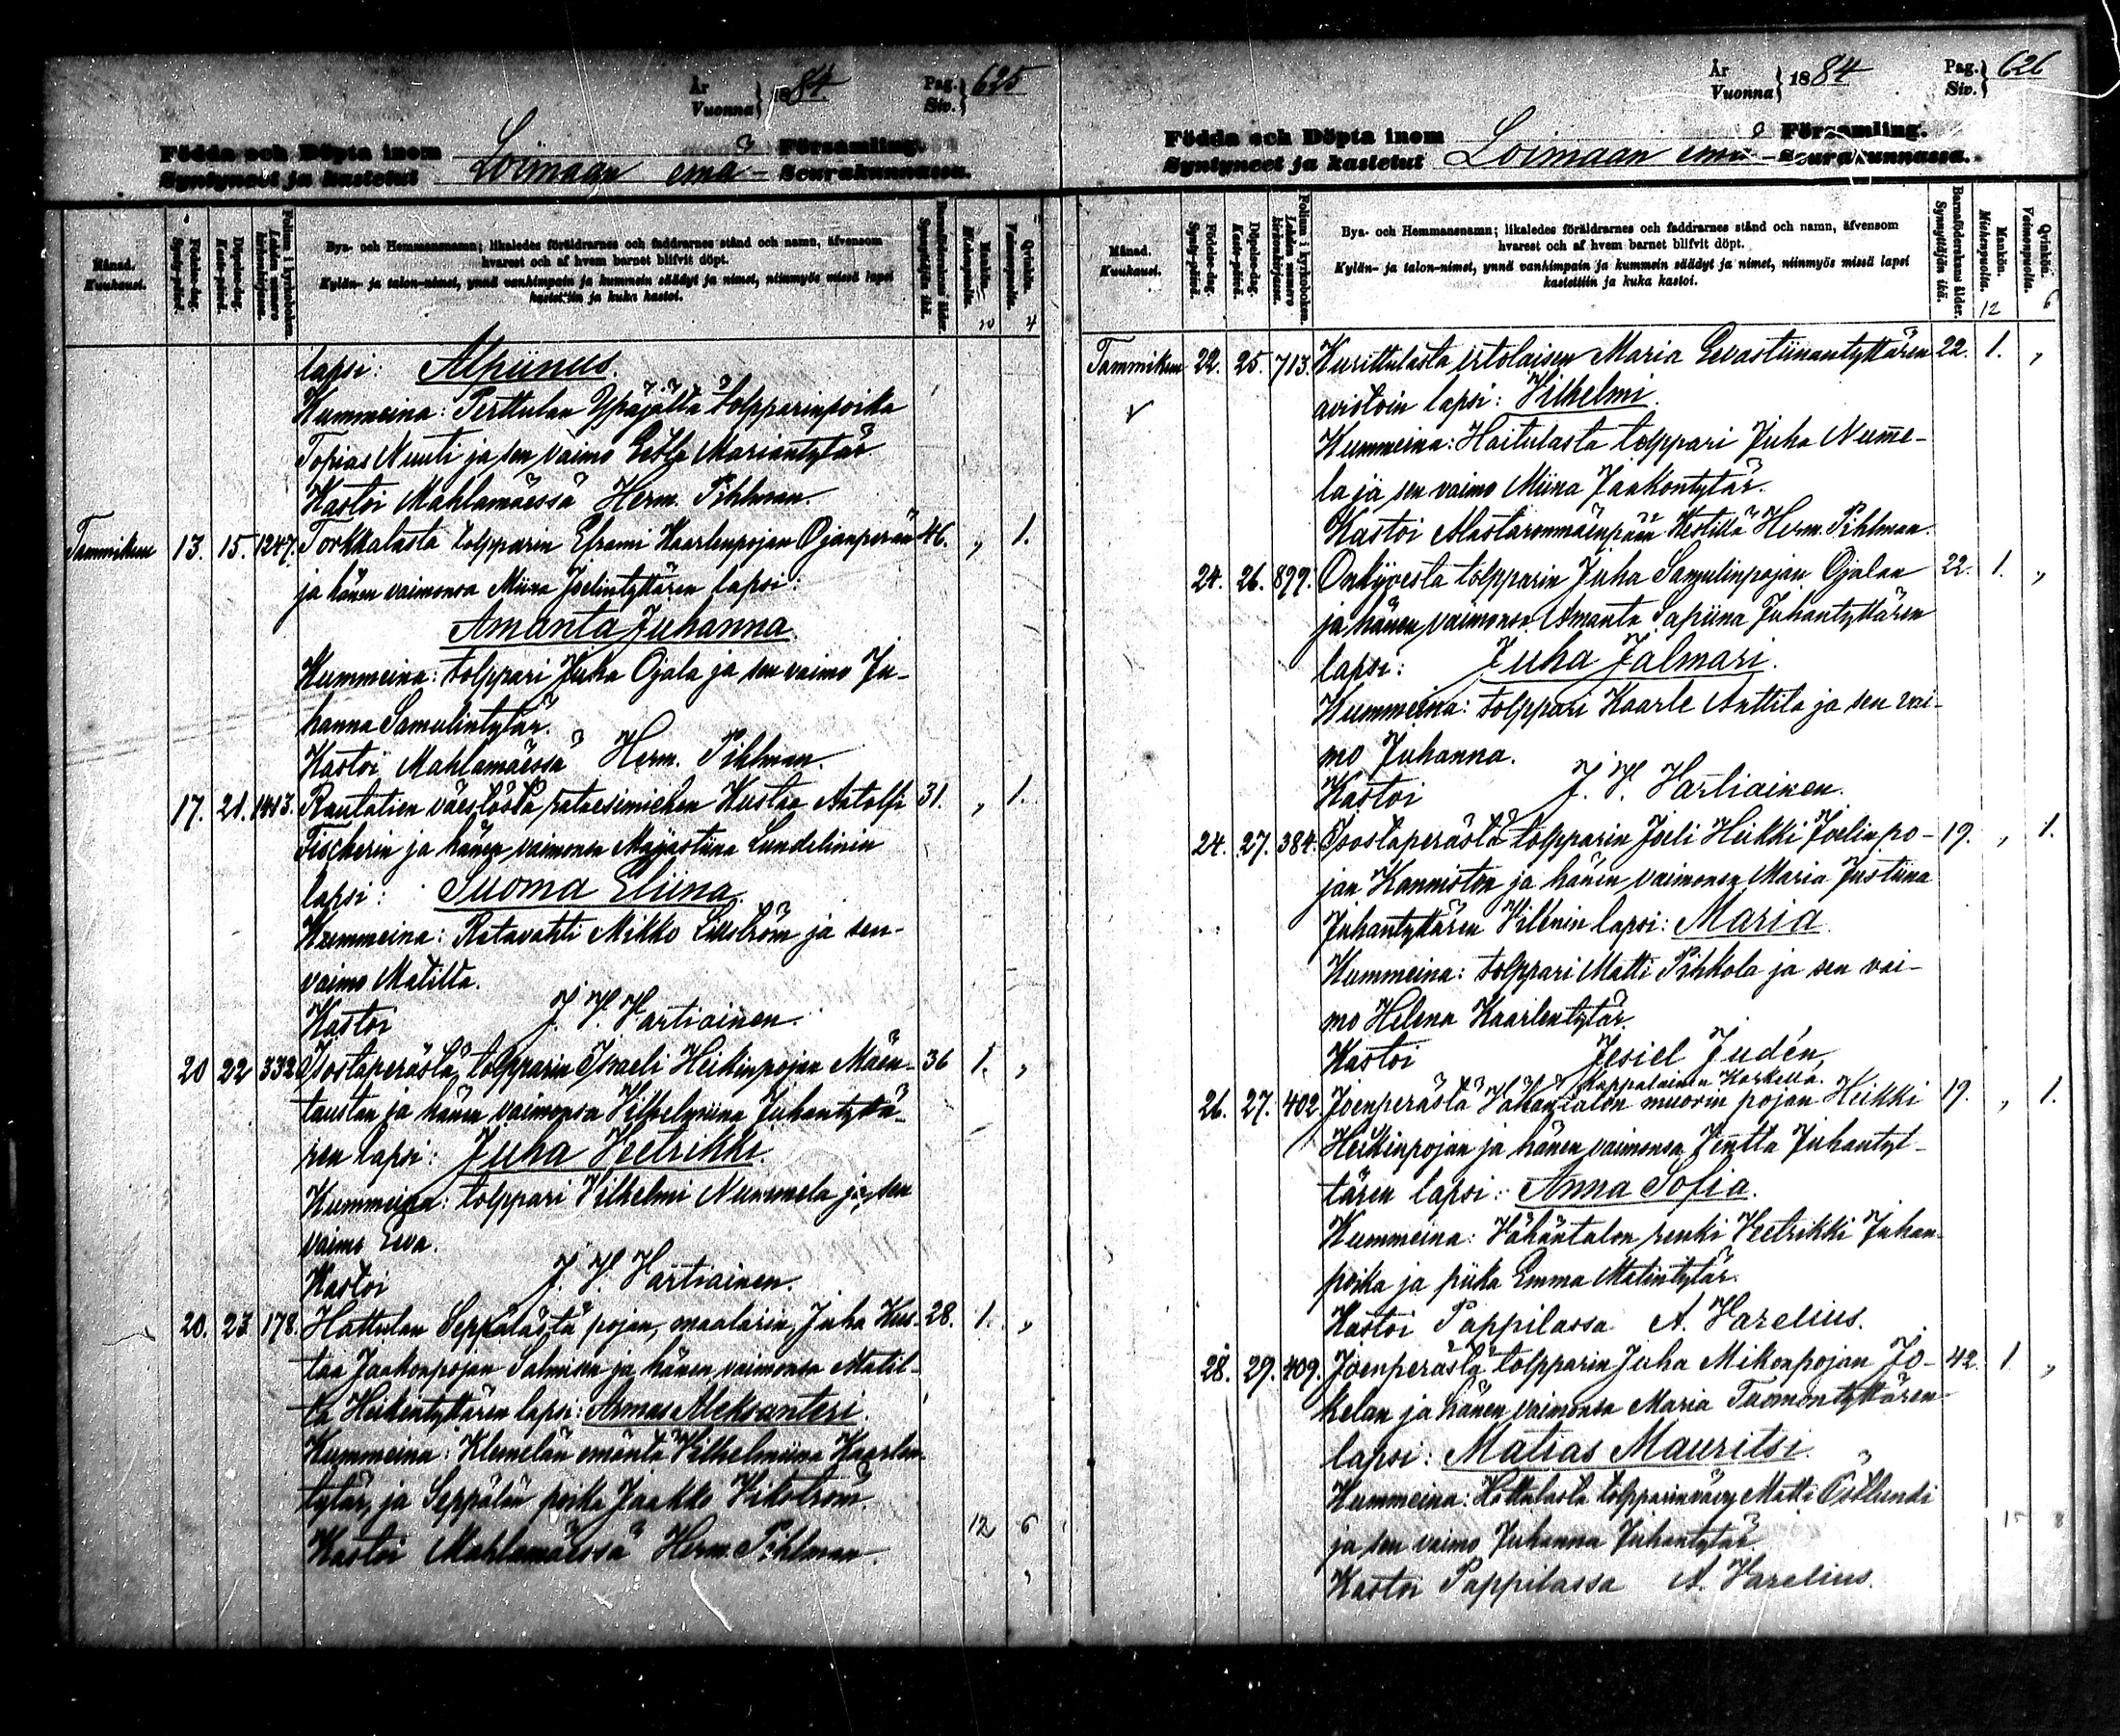 År
Vuonna } 1884
Pag.
Siv. } 625
Födda och Döpta inom
Syntyneet ja kastetut Loimaan emä- Församling.
Seurakunnassa.
Månad.
Kuukausi.
Födelse-dag.
Synty-päivä.
Döpelse-dag.
Kaste-päivä.
Folium i kyrkoboken.
Lehden numero kirkonkirjassa.
Bya- och Hemmansnamn; likaledes föräldrarnes och faddrarnes stånd och namn, äfvensom
hvarest och af hvem barnet blifvit döpt.
Kylän- ja talon-nimet, ynnä vanhimpain ja kummein säädyt ja nimet, niinmyös missä lapsi
kastettiin ja kuka kastoi.
Barnaföderskans ålder.
Synnyttäjän ikä.
Mankön.
Miehenpuolia.
Qvinkön.
Vaimonpuolia.
10 4
lapsi: Alpiinus.
Kummeina: Perttulan Ypäjältä tolpparinpoika
Topias Nuuti ja sen vaimo Mariantytär
Kastoi Mahlamäessä Herm. Pihlman.
Tammikuu 13. 15. 1247. Torkkalasta tolpparin Eframi Kaarlenpojan Ojanperän 46. „ 1.
ja hänen vaimonsa Miina Joelintyttären lapsi:
Amanta Juhanna.
Kummeina: tolppari Juha Ojala ja sen vaimo Ju-
hanna Samulintytär.
Kastoi Mahlamäessä Herm. Pihlman.
17. 21. 1413. Rautatien väestöstä rataesimiehen Kustaa Aatolfi 31. „ 1.
Fischerin ja hänen vaimonsa Majastiina Lundelinin
lapsi: Suoma Eliina.
Kummeina: Ratavahti Mikko Lillström ja sen
vaimo Matilta.
Kastoi J. V. Vartiainen.
20 22 332 Isostaperästä, tolpparin Israeli Heikinpojan Mäen- 36 1. „
taustan ja hänen vaimonsa Vilhelmiina Juhantyttä-
ren lapsi: Juha Veetrikki.
Kummeina: tolppari Vilhelmi Nummela ja sen
vaimo Eeva.
Kastoi J. V. Vartiainen.
20. 23. 178. Hattulan Seppälästä pojan, maalarin, Juha Kus- 28. 1. „
taa Jaakonpojan Salmisen ja hänen vaimonsa Matil-
ta Heikintyttären lapsi: Armas Aleksanteri.
Kummeina: Klemelän emäntä Vilhelmiina Kaarlen-
tytär, ja Seppälän poika Jaakko Vikström
Kastoi Mahlamäessä Herm. Pihlman.
12 6
År
Vuonna } 1884
Pag.
Siv. } 626
Födda och Döpta inom
Syntyneet ja kastetut Loimaan emä- Församling.
Seurakunnassa.
Månad.
Kuukausi.
Födelse-dag.
Synty-päivä.
Döpelse-dag.
Kaste-päivä.
Folium i kyrkoboken.
Lehden numero kirkonkirjassa.
Bya- och Hemmansnamn; likaledes föräldrarnes och faddrarnes stånd och namn, äfvensom
hvarest och af hvem barnet blifvit döpt.
Kylän- ja talon-nimet, ynnä vanhimpain ja kummein säädyt ja nimet, niinmyös missä lapsi
kastettiin ja kuka kastoi.
Barnaföderskans ålder.
Synnyttäjän ikä.
Mankön.
Miehenpuolia.
Qvinkön.
Vaimonpuolia.
12 6
Tammikuu 22. 25. 713. Kurittulasta irtolaisen Maria Eevastiinantyttären 22. 1. „
aviotoin lapsi: Vilhelmi.
Kummeina: Haitulasta tolppari Juha Numme-
la ja sen vaimo Miina Jaakontytär.
Kastoi Alastaronmäenpään Kestillä Herm. Pihlman.
24. 26. 899. Onkijoesta tolpparin Juha Samulinpojan Ojalan 22. 1. „
ja hänen vaimonsa Amanta Sapiina Juhantyttären
lapsi: Juha Jalmari.
Kummeina: tolppari Kaarle Anttila ja sen vai-
mo Juhanna.
Kastoi J. V. Vartiainen.
24. 27. 384. Isostaperästä tolpparin Joeli Heikki Joelinpo- 19. „ 1.
jan Kanniston ja hänen vaimonsa Maria Justiina
Juhantyttären Vilenin lapsi: Maria.
Kummeina: tolppari Matti Pihkola ja sen vai-
mo Helena Kaarlentytär.
Kastoi Jesiel Judén,
Kappalainen Koskella.
26. 27. 402. Joenperästä Vähäntalon muorin pojan Heikki 19. „ 1.
Heikinpojan ja hänen vaimonsa Jentta Juhantyt-
tären lapsi: Anna Sofia.
Kummeina: Vähäntalon renki Veetrikki Juhan-
poika ja piika Emma Matintytär.
Kastoi Pappilassa A. Varelius.
28. 29. 409. Joenperästä tolpparin Juha Mikonpojan Jo- 42. 1. „
kelan ja hänen vaimonsa Maria Tuomontyttären
lapsi: Matias Mauritsi.
Kummeina: Hattulasta tolpparinvävy Matti Östlundi
ja sen vaimo Juhanna Juhantytär.
Kastoi Pappilassa A. Varelius.
15 8